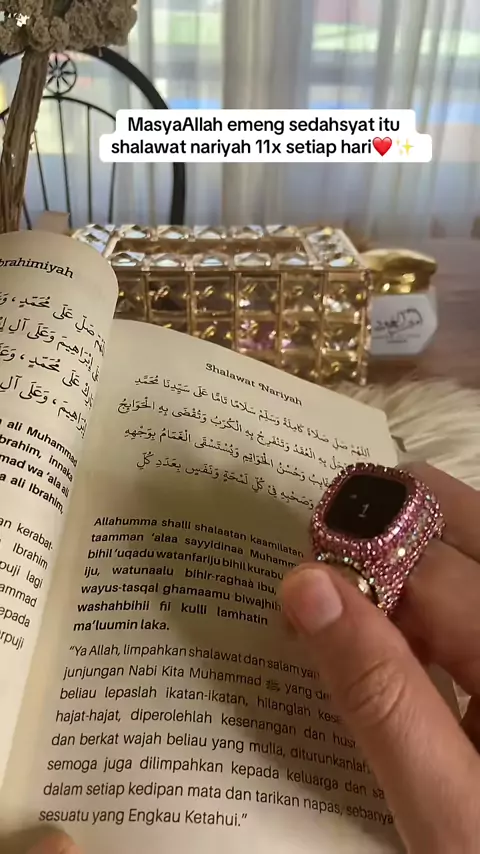 MasyaAllah emeng sedahsyat itu
shalawat nariyah 11x setiap hari❤️✨
brahimiyah
ali Muhammad
brahim, innaka
mad wa ala ali
a ali Ibrahim.
an kerabat-
Ibrahim
puji lagi
ammad
epada
rpuji
Shalawat Nariyah
اَللّٰهُمَّ صَلِّ صَلَاةً كَامِلَةً وَسَلِّمْ سَلَامًا تَامًّا عَلَى سَيِّدِنَا مُحَمَّدٍ
بِهِ الْعُقَدُ وَتَنْفَرِجُ بِهِ الْكُرَبُ وَتُقْضَى بِهِ الْحَوَائِجُ
وَحُسْنُ الْخَوَاتِمِ وَيُسْتَسْقَى الْغَمَامُ بِوَجْهِهِ
وَصَحْبِهِ فِيْ كُلِّ لَمْحَةٍ وَنَفَسٍ بِعَدَدِ كُلِّ
Allahumma shalli shalaatan kaamilatan
taamman 'alaa sayyidinaa Muhamm
bihil 'uqadu watanfariju bihil kurabu
iju, watunaalu bihir-raghaa ibu,
wayus-tasqal ghamaamu biwajhih
washahbihii fii kulli lamhatin
ma'luumin laka.
"Ya Allah, limpahkan shalawat dan salam yan
junjungan Nabi Kita Muhammad ﷺ, yang de
beliau lepaslah ikatan-ikatan, hilanglah kes
hajat-hajat, diperolehlah kesenangan dan hus
dan berkat wajah beliau yang mulia, diturunkanlah
semoga juga dilimpahkan kepada keluarga dan sa
dalam setiap kedipan mata dan tarikan napas, sebanya
sesuatu yang Engkau Ketahui."
1